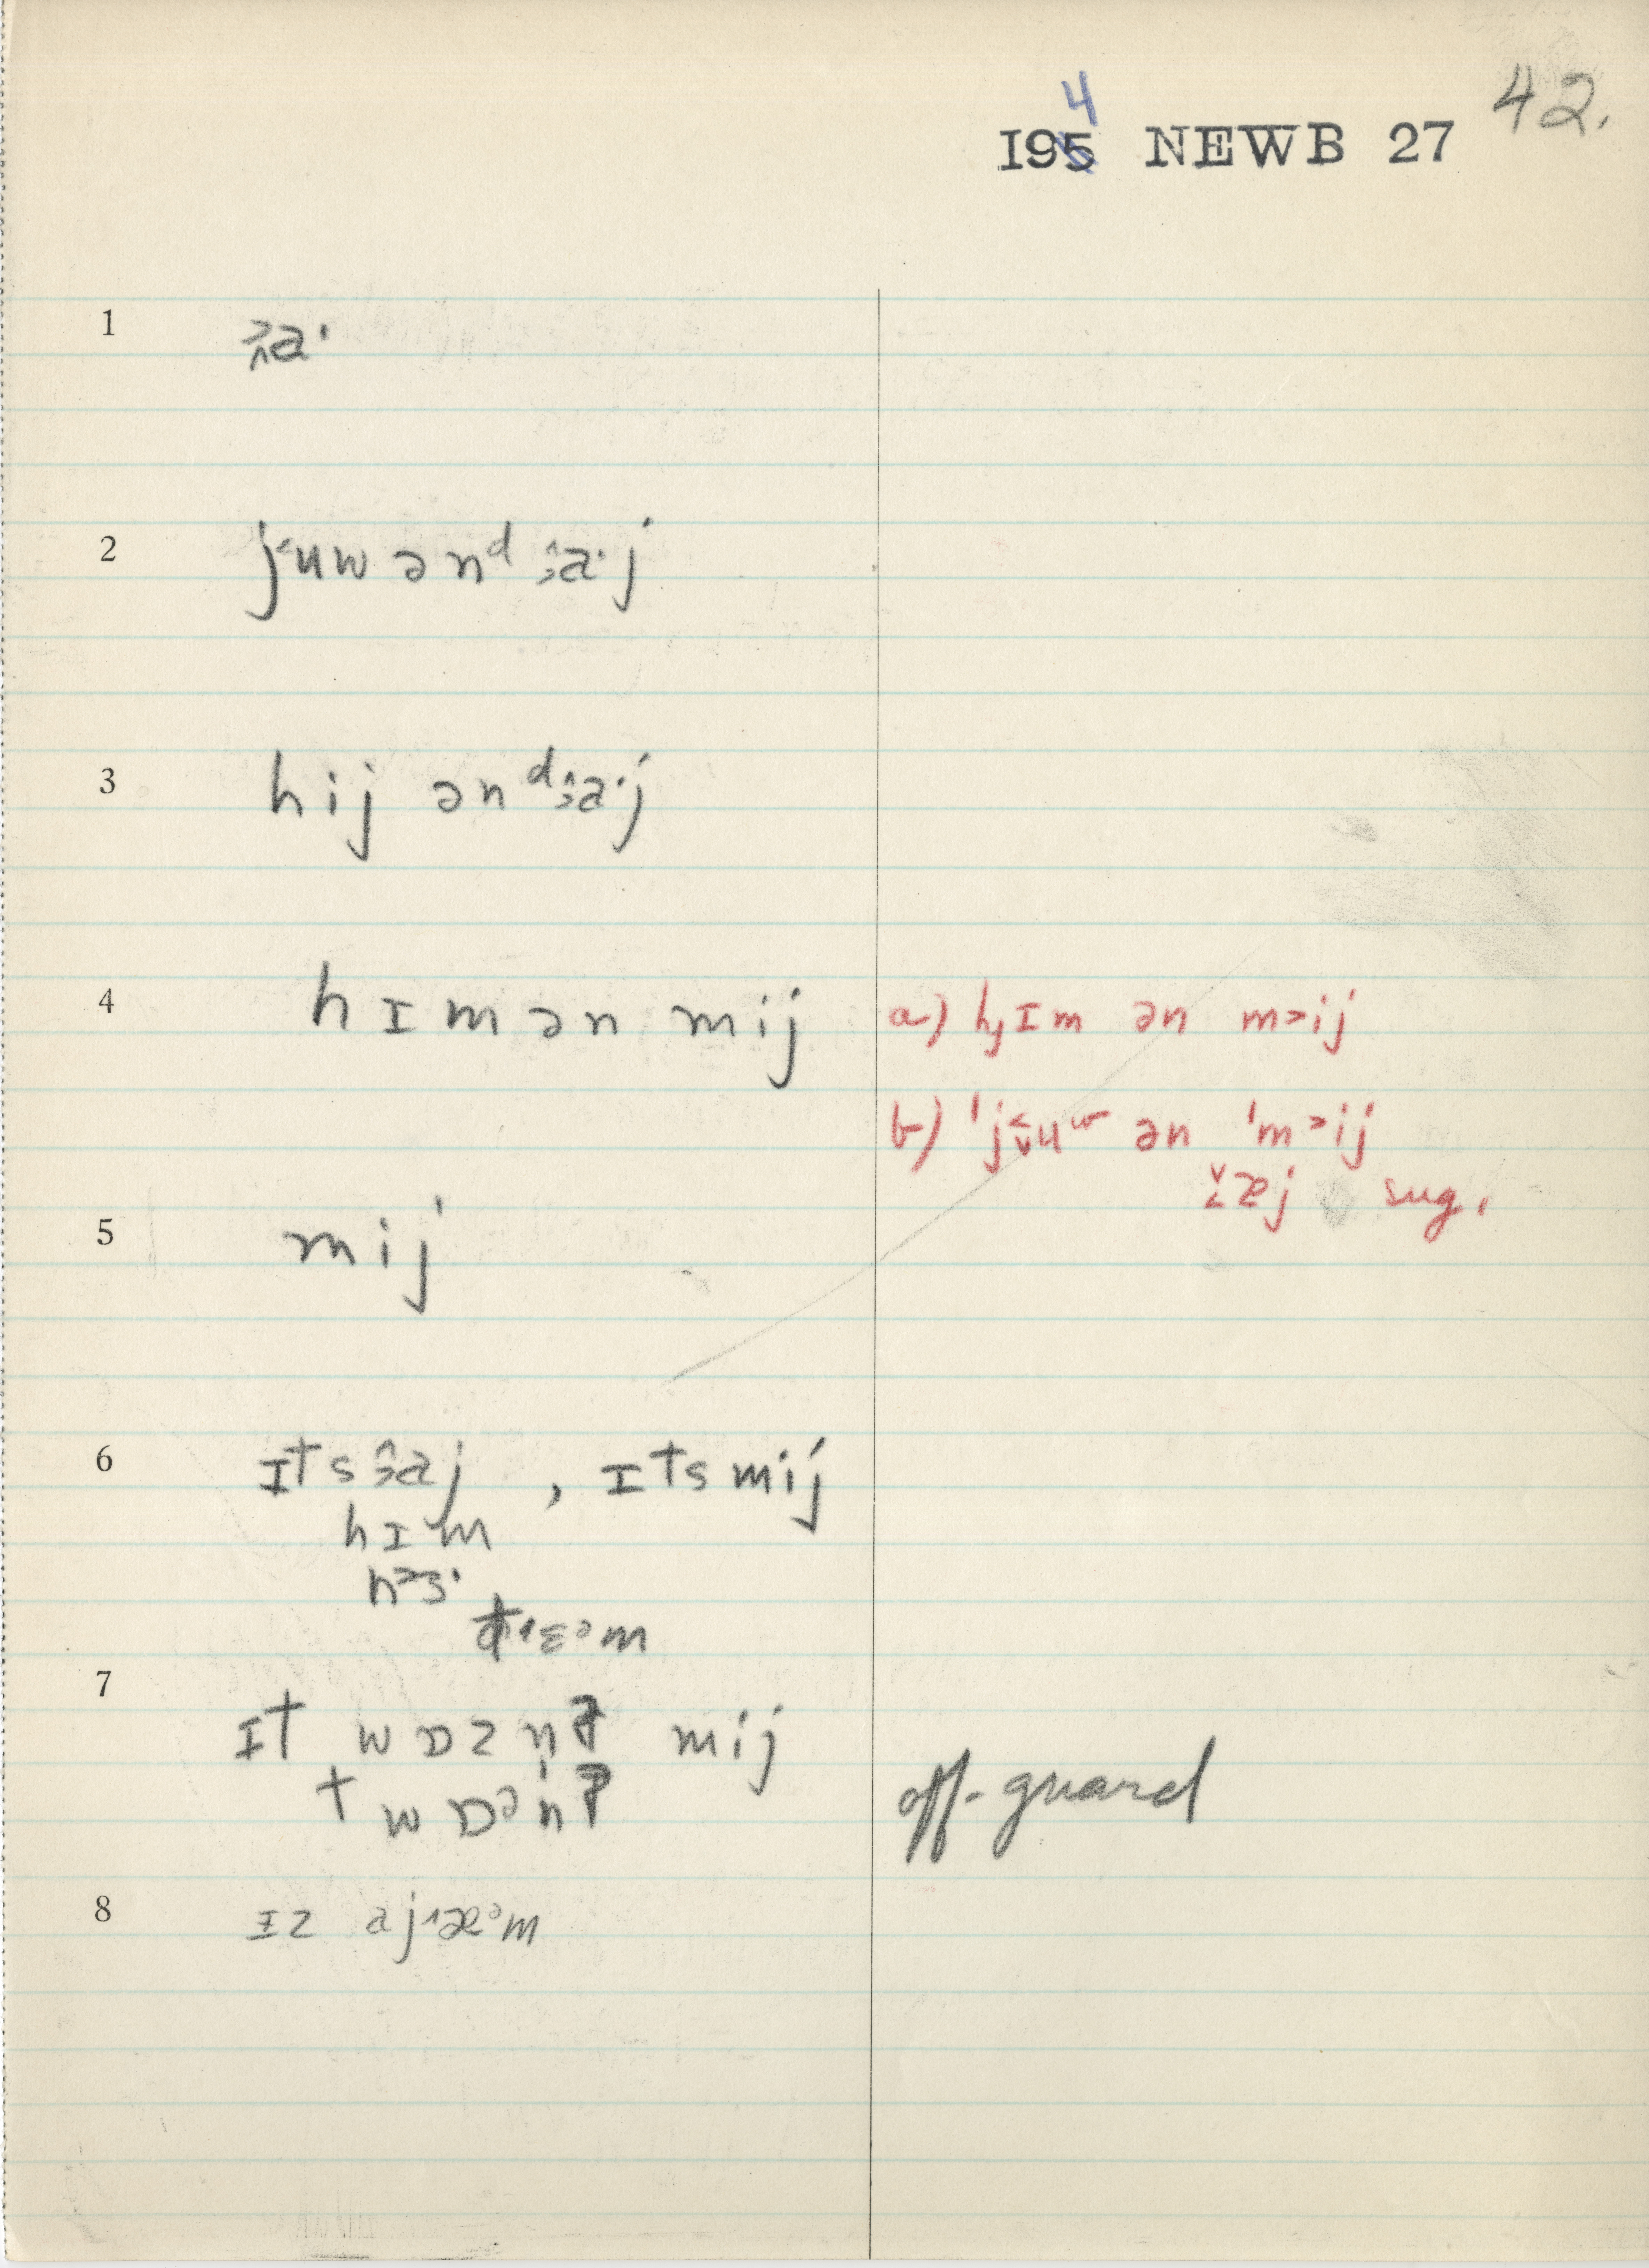 4
I95 NEWB 27 42.
1 a·
2 j˂uw ənᵈ a·j
3 hij ənᵈ a·j
4 hɪmən mij a) hɪm ən m˃ij
b) 'j˂uʷ ən 'm˃ij
æj sug.
5 mij
6 ɪts aj , ɪts mij
hɪm
h˃ɜ·
m
7
ɪt wɒz mij
t wɒᶻ off-guard
8 ɪz aj æᵊm